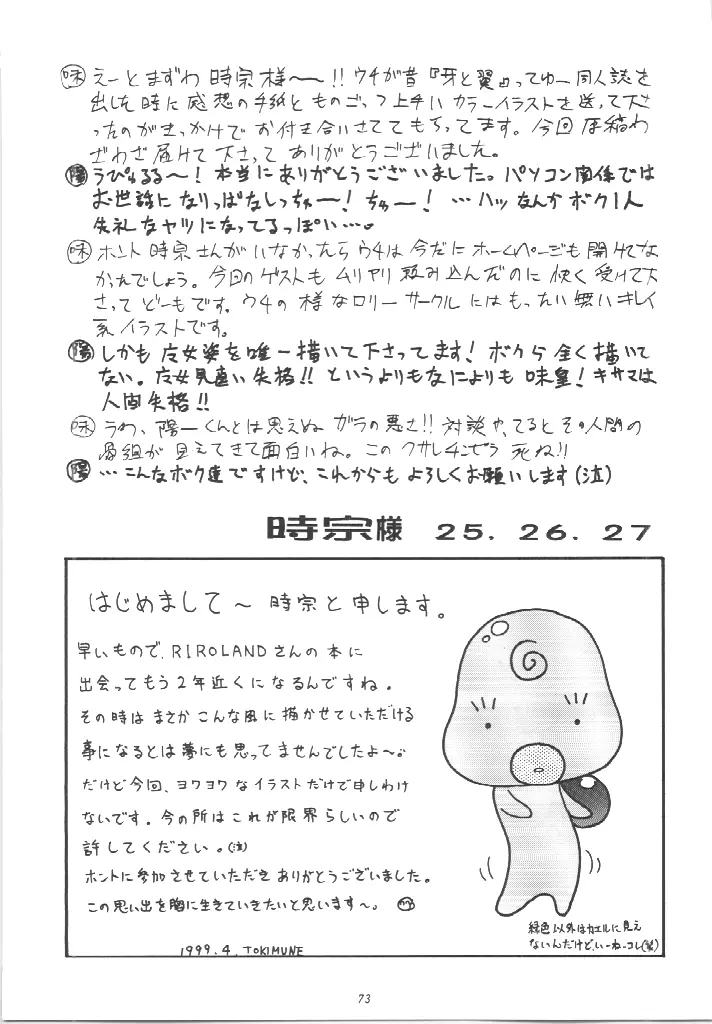 味 えーとまずわ 時宗様〜〜!! ウチが昔『牙と翼』ってゆー同人誌を
出した時に感想の手紙とものごっつ上手いカラーイラストを送って下さ
ったのがきっかけでお付き合いさせてもらってます。今回原稿わ
ざわざ届けて下さってありがとうございました。
陽 うぴゅるる〜! 本当にありがとうございました。パソコン関係では
お世話になりっぱなしっちゅー! ちゅー! …ハッ なんかボク1人
失礼なヤツになってるっぽい…。
味 ホント時宗さんがいなかったらウチは今だにホームページも開けてな
かったでしょう。今回のゲストもムリヤリ頼み込んだのに快く受けて下
さってどーもです。ウチの様なロリーサークルにはもったい無いキレイ
系イラストです。
陽 しかも 女姿を唯一描いて下さってます! ボクら全く描いて
ない。 失格!! というよりもなによりも 味皇! キサマは
人間失格!!
味 うわ、陽一くんとは思えぬガラの悪さ!! 対談やってるとその人間の
が見えてきて面白いね。この クサレ 死ね!!
陽 …こんなボク達ですけど、これからもよろしくお願いします(泣)
時宗様 25. 26. 27
はじめまして〜 時宗と申します。
早いもので、RIROLANDさんの本に
出会ってもう2年近くになるんですね。
その時はまさかこんな風に描かせていただける
事になるとは夢にも思ってませんでしたよ〜。
だけど今回、ヨワヨワなイラストだけで申しわけ
ないです。今の所はこれが限界らしいので
許してください。(泣)
ホントに参加させていただきありがとうございました。
この思い出を胸に生きていきたいと思います〜。
緑色以外はカエルに見え
ないんだけど、いーねーコレ(笑)
1999.4. TOKIMUNE
73